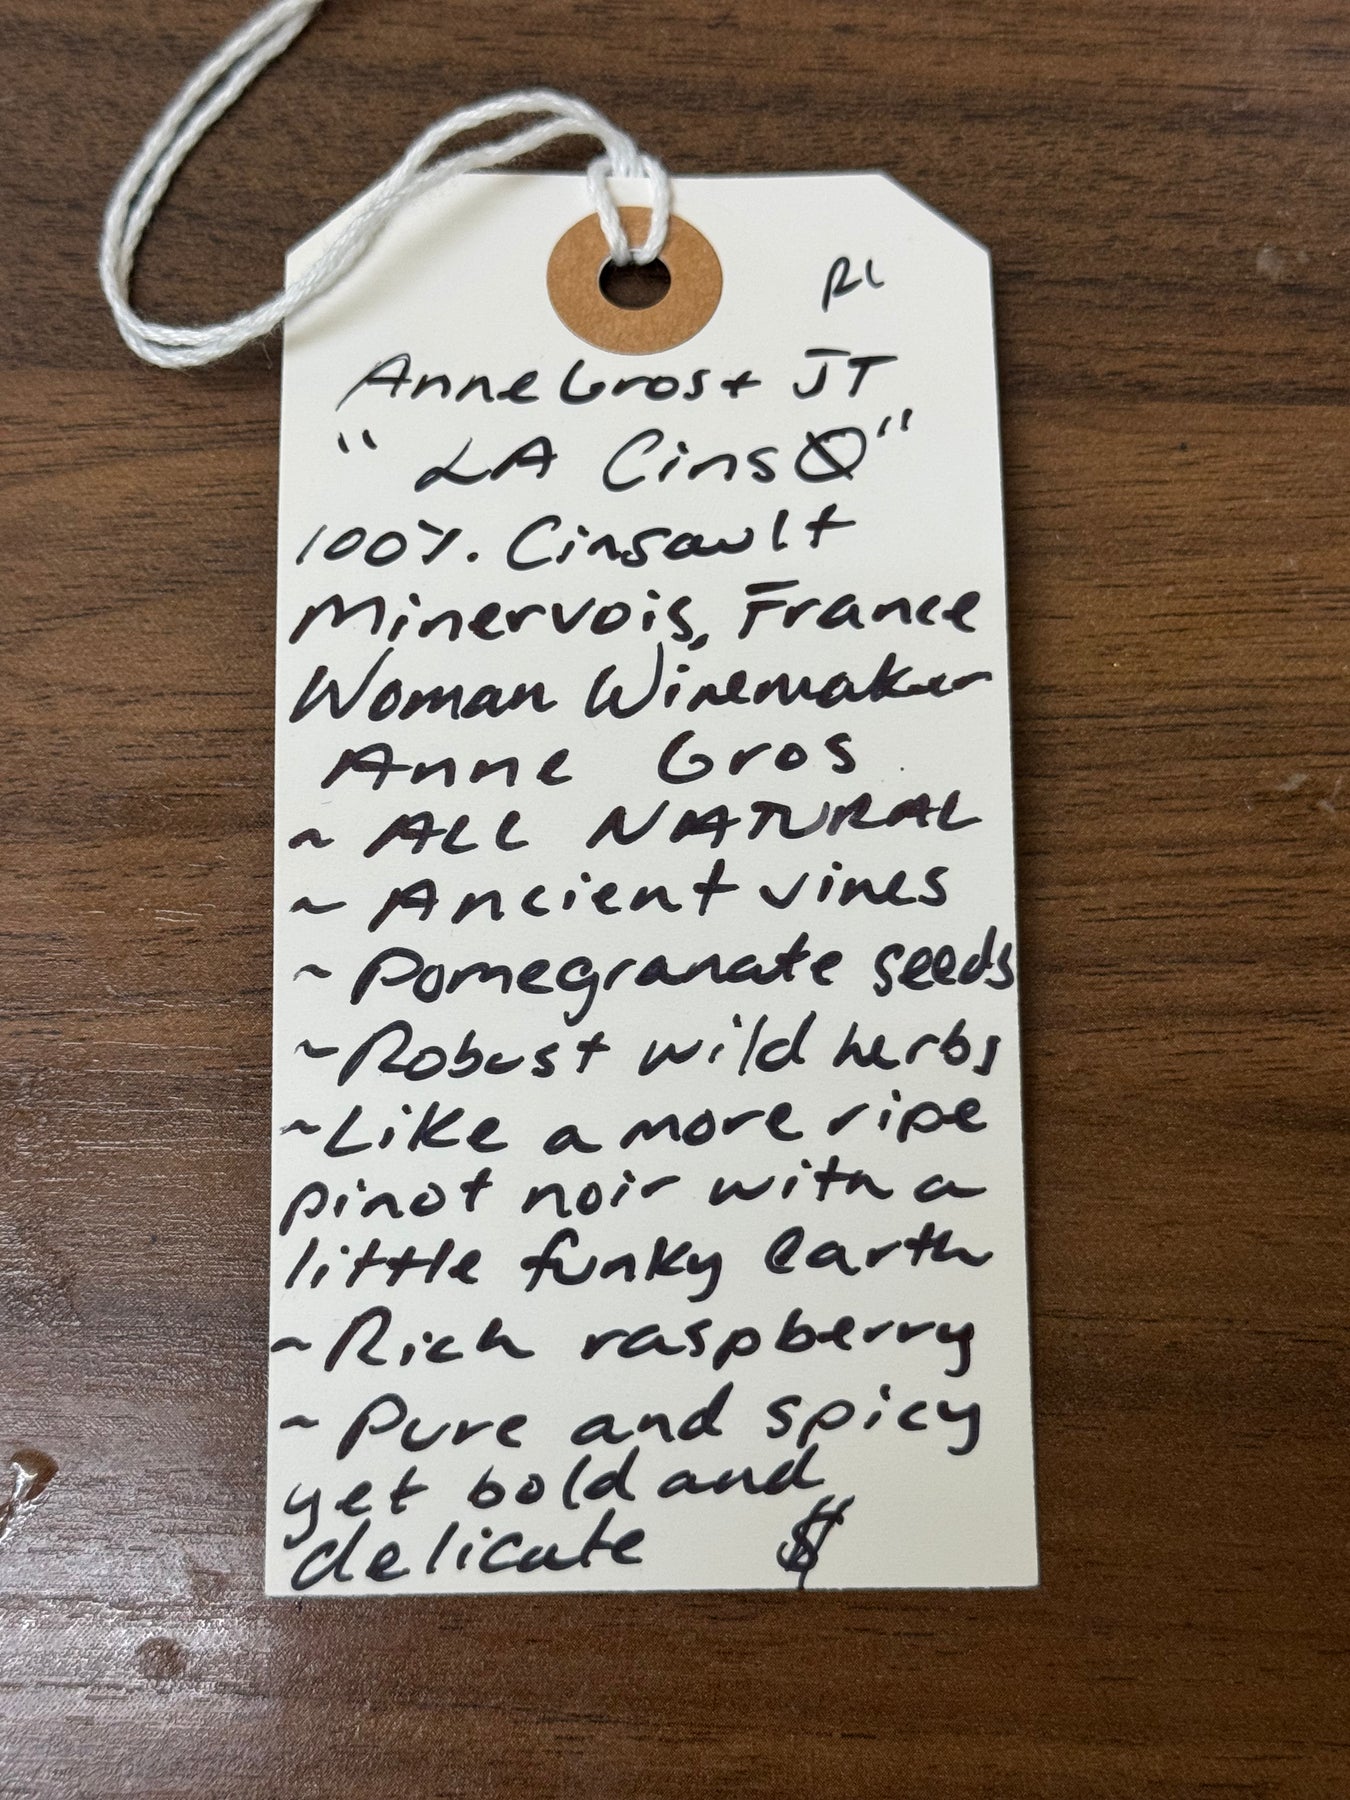 RL
Anne Gros + JT
"LA CinsØ"
100%. Cinsault
Minervois, France
Woman Winemaker
Anne Gros
~ ALL NATURAL
~ Ancient vines
~ Pomegranate seeds
~ Robust wild herbs
~ Like a more ripe
pinot noir with a
little funky earth
~ Rich raspberry
~ Pure and spicy
yet bold and
delicate $